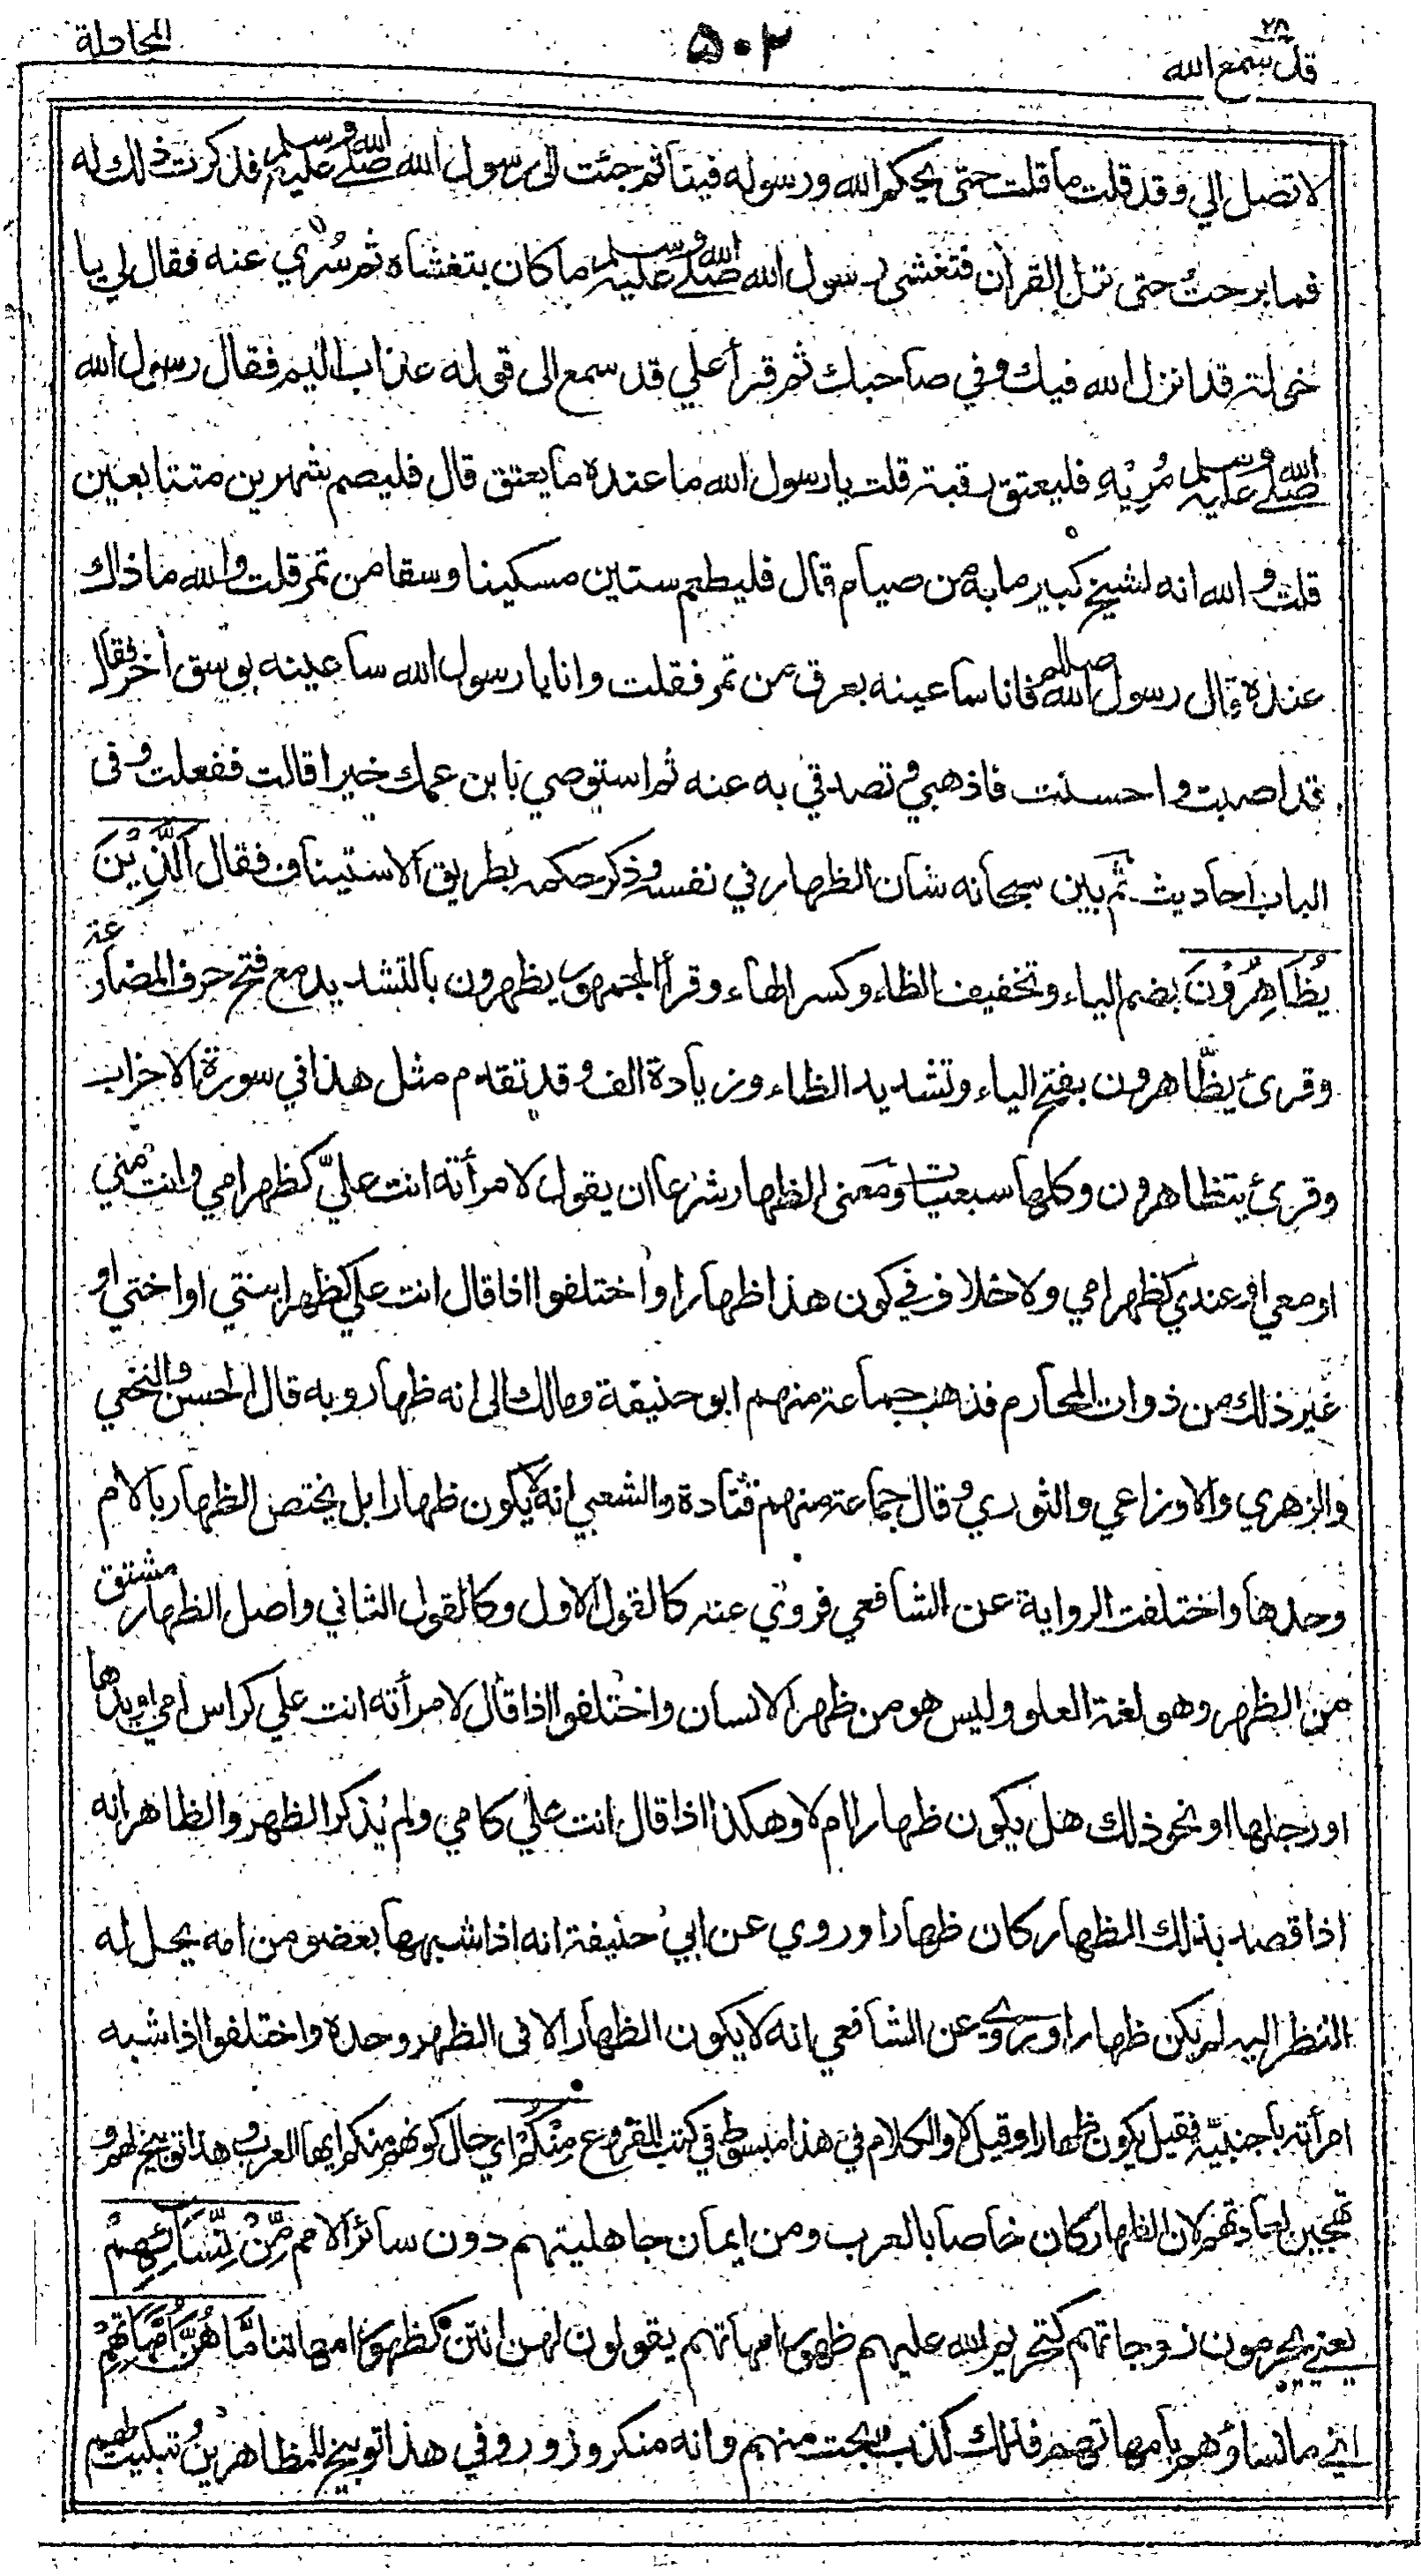 ٢٨
قد سمع الله
٥٠٢
المجادلة
لا تصل الي وقد قلت ما قلت حتى يحكم الله ورسوله فينا ثم جئت الى رسول الله صلى الله عليه وسلم فذكرت ذلك له
فما برحتُ حتى نزل القرأن فتغشى رسول الله صلى الله عليه وسلم ما كان يتغشاه ثم سُرّي عنه فقال لي يا
خولة قد انزل الله فيك وفي صاحبك ثم قرأ علي قد سمع الى قوله عذاب اليم فقال رسول الله
صلى الله عليه وسلم مُرِيْهِ فليعتق رقبة قلت يا رسول الله ما عنده ما يعتق قال فليصم شهرين متتابعين
قلت والله انه لشيخ كبير ما به من صيام قال فليطعم ستين مسكينا وسقا من تمر قلت والله ما ذاك
عنده قال رسول الله صللم فانا ساعينه بعرق من تمر فقلت وانا يا رسول الله ساعينه بوسق أخر فقال
قد اصبت واحسنت فاذهبي وتصدقي به عنه ثم استوصي بابن عمك خيرا قالت ففعلت وفى
الباب احاديث ثم بين سبحانه شان الظهار في نفسه وذكر حكمه بطريق الاستيناف فقال اَلَّذِيْنَ
يُظَاهِرُوْنَ بضم الياء وتخفيف الظاء وكسر الهاء وقرأ الجمهور يظهرون بالتشديد مع فتح حرف المضارعة
وقرئ يظّاهرون بفتح الياء وتشديد الظاء وزيادة الف وقد تقدم مثل هذا في سورة الاحزاب
وقرئ يتظاهرون وكلها سبعيات ومعنى الظهار شرعا ان يقول لامرأته انت عليّ كظهر امي وانت مني
او معي او عندي كظهر امي ولا خلاف في كون هذا ظهارا واختلفوا اذا قال انت علي كظهر ابنتي او اختي او
غير ذلك من ذوات المحارم فذهب جماعة منهم ابو حنيفة ومالك الى انه ظهار وبه قال الحسن والنخعي
والزهري والاوزاعي والثوري وقال جماعة منهم قتادة والشعبي انه لا يكون ظهارا بل يختص الظهار بالام
وحدها واختلفت الرواية عن الشافعي فروي عنه كالقول الاول وكالقول الثاني واصل الظهار مشتق
من الظهر وهو لغة العلو وليس هو من ظهر الانسان واختلفوا اذا قال لامرأته انت علي كراس امي او يدها
او رجلها او نحو ذلك هل يكون ظهارا ام لا وهكذا اذا قال انت علي كامي ولم يذكر الظهر والظاهر انه
اذا قصد بذلك الظهار كان ظهارا وروي عن ابي حنيفة انه اذا شبهها بعضو من امه يحل له
النظر اليه لم يكن ظهارا وروي عن الشافعي انه لا يكون الظهار الا فى الظهر وحده واختلفوا اذا شبه
امرأته باجنبيّة فقيل يكون ظهارا وقيل لا والكلام في هذا مبسوط في كتب الفروع مِنْكُمْ اي حال كونهم منكم ايها العرب وهذا توبيخ لهم و
تهجين لعادتهم لان الظهار كان خاصا بالعرب ومن ايمان جاهليتهم دون سائر الامم مِّنْ نِّسَآئِهِمْ
يعني يحرمون زوجاتهم كتحريم الله عليهم ظهور امهاتهم يقولون لهن انتن كظهور امهاتنا مَّا هُنَّ اُمَّهَاتِهِمْ
اي ما نساؤهم بامهاتهم فذلك كذب بحت منهم وانه منكر وزور وفي هذا توبيخ للمظاهرين وتبكيت لهم